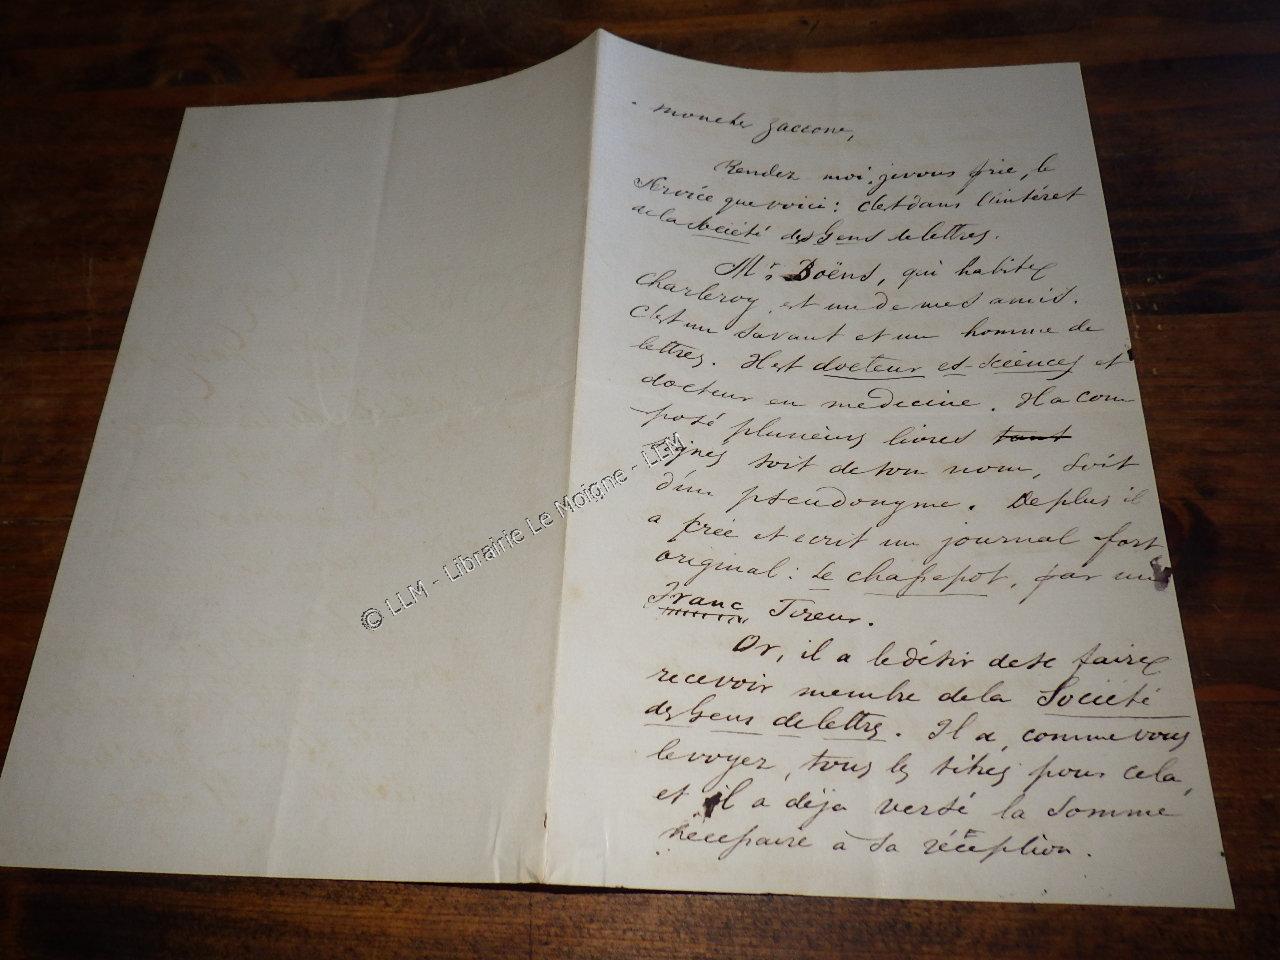 mon cher Zaccone,
Rendez moi, je vous prie, le
service que voici : c'est dans l'intéret
de la Société des Gens de lettres.
Mr. Boëns, qui habite
Charleroy, est un de mes amis.
C'est un savant et un homme de
lettres. Il est docteur es-sciences et
docteur en medecine. Il a com
posé plusieurs livres tant
signés soit de son nom, soit
d'un pseudonyme. De plus il
a créé et ecrit un journal fort
original : Le chassepot, par un
Franc Tireur.
Or, il a le désir de se faire
recevoir membre de la Société
des Gens de lettres. Il a, comme vous
le voyez, tous les titres pour cela,
et il a déja versé la somme
nécessaire à sa réception.
© LLM - Librairie Le Moigne - LLM